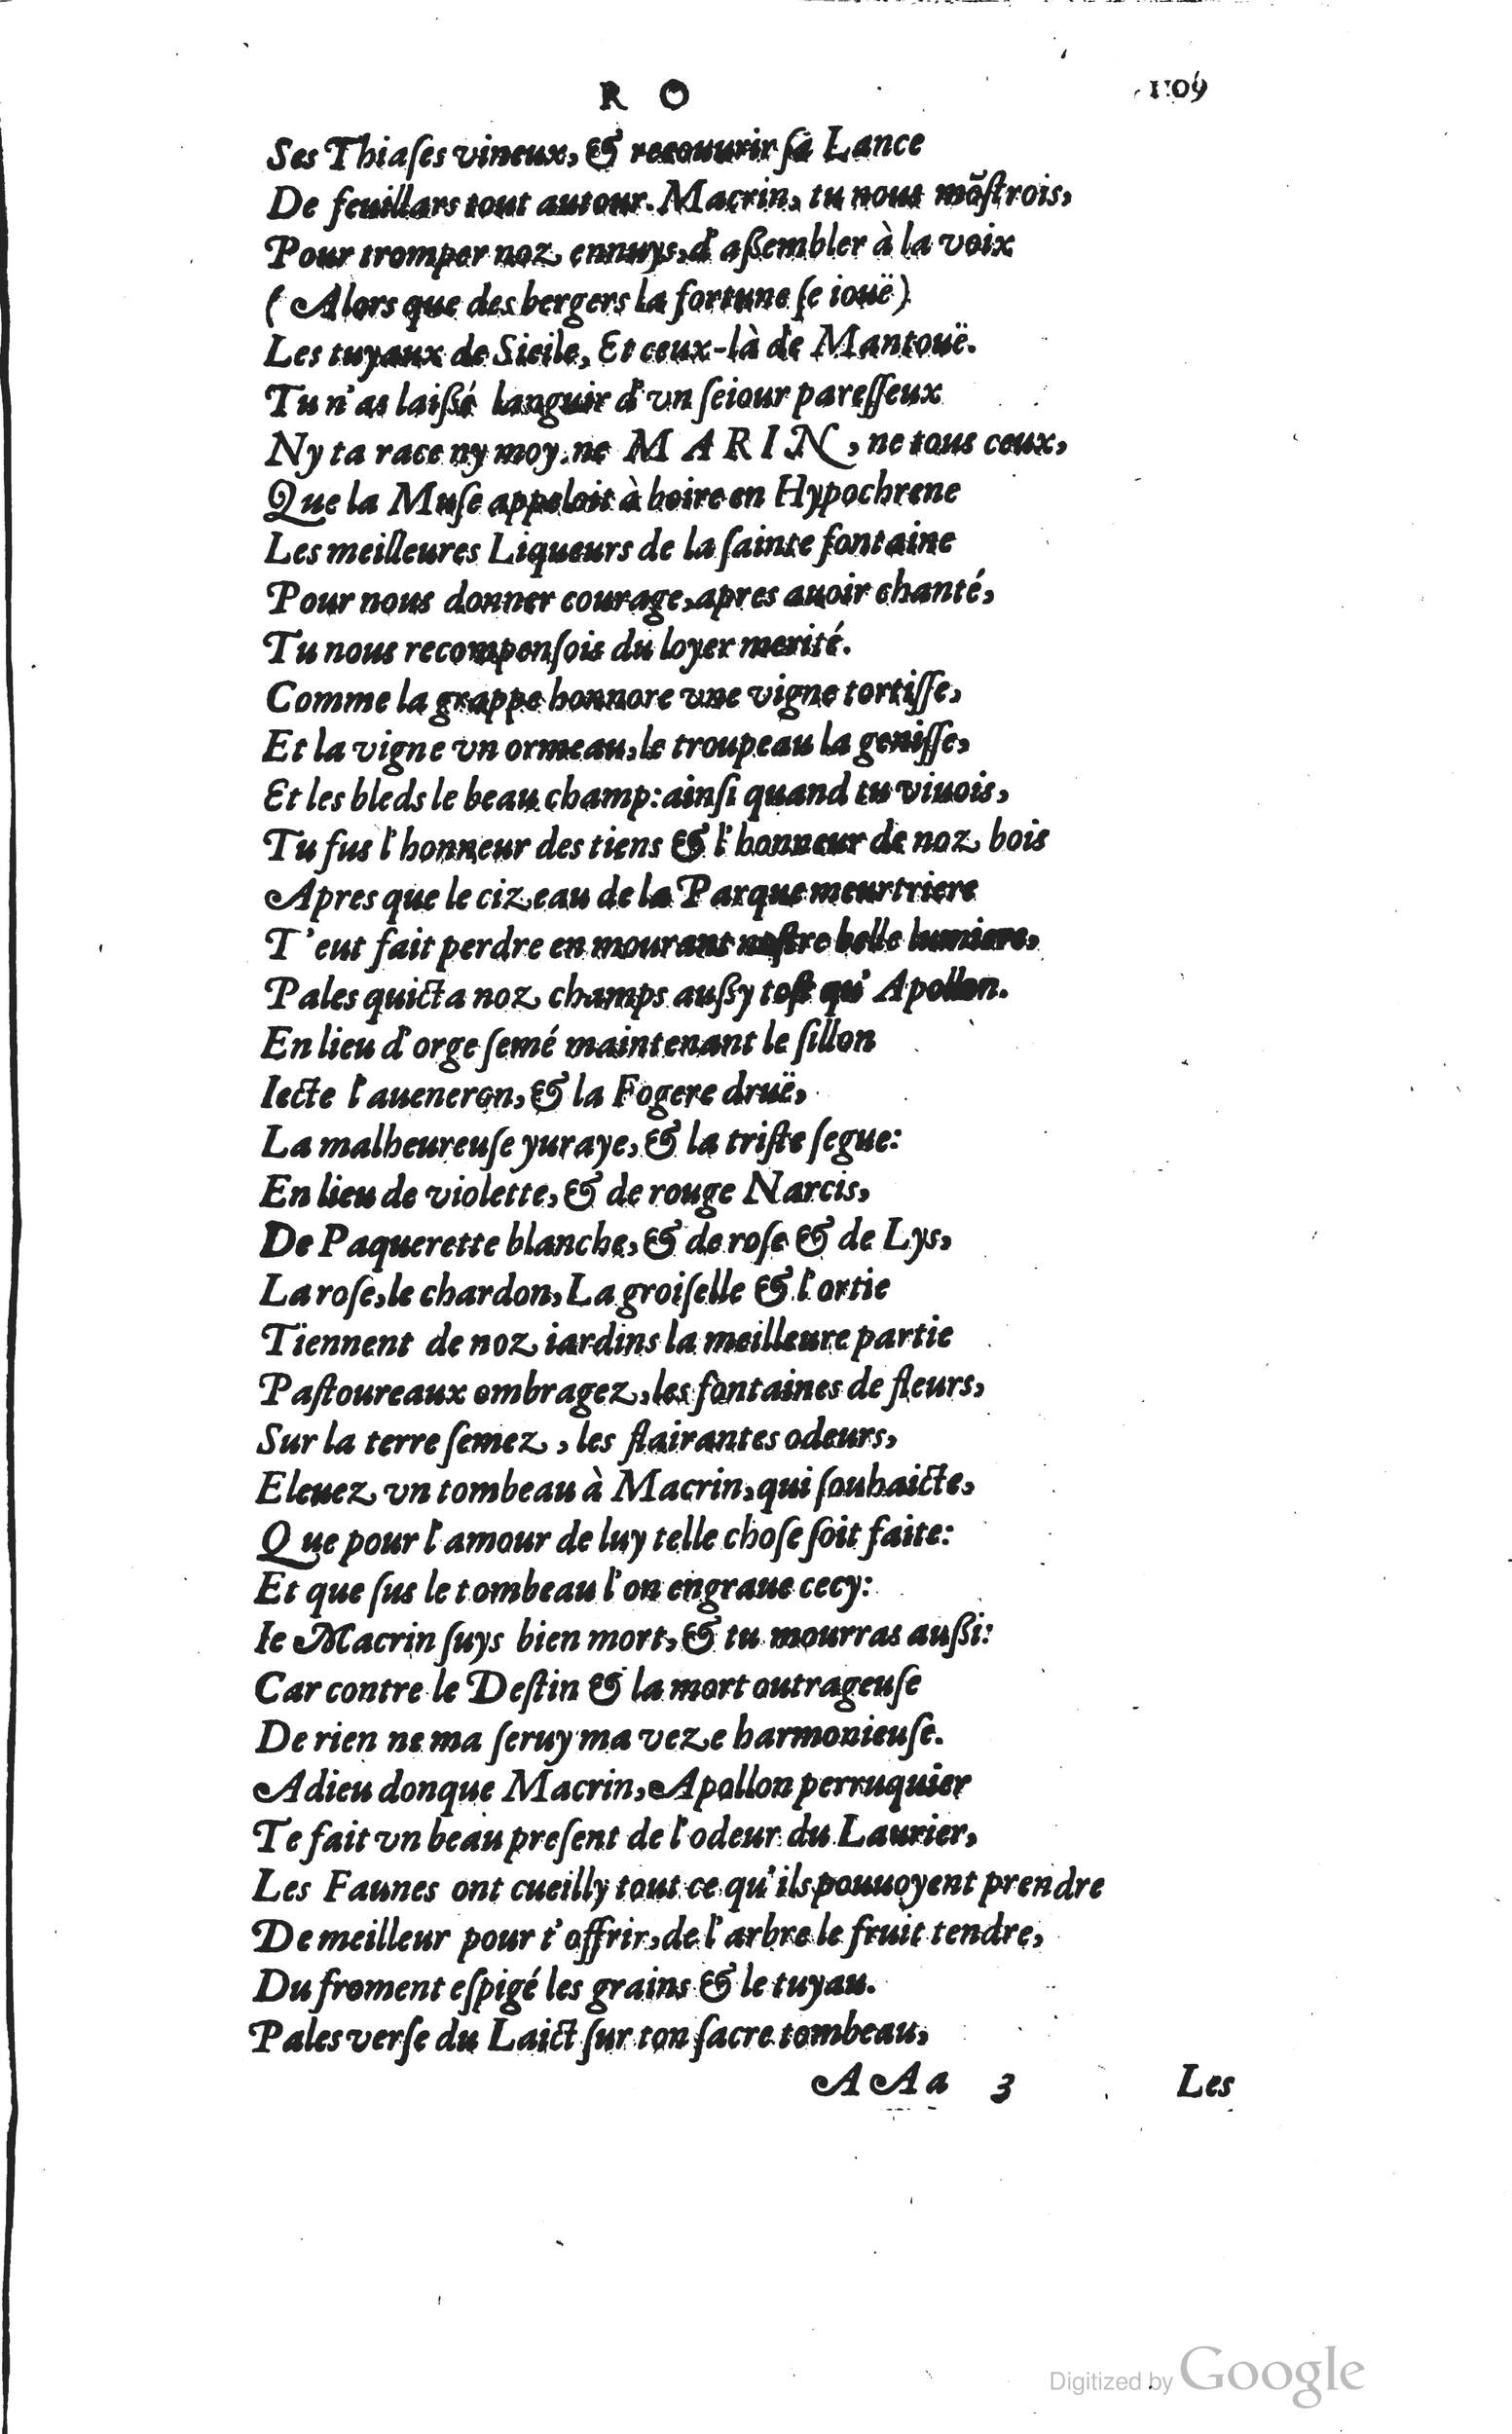 R O 1109
Ses Thiaſes vineux, & recouurir ſa Lance
De feuillars tout autour. Macrin, tu nous mõſtrois,
Pour tromper noz ennuys, d'aßembler à la voix
(Alors que des bergers la fortune ſe iouë)
Les tuyaux de Sicile, Et ceux-là de Mantouë.
Tu n'as laißé languir d'vn ſeiour pareſſeux
Ny ta race ny moy, ne MARIN, ne tous ceux,
Que la Muſe appeloit à boire en Hypochrene
Les meilleures Liqueurs de la ſainte fontaine
Pour nous donner courage, apres auoir chanté,
Tu nous recompenſois du loyer merité.
Comme la grappe honnore vne vigne tortiſſe,
Et la vigne vn ormeau, le troupeau la geniſſe,
Et les bleds le beau champ: ainſi quand tu viuois,
Tu fus l'honneur des tiens & l'honneur de noz bois
Apres que le cizeau de la Parque meurtriere
T'eut fait perdre en mourant noſtre belle lumiere,
Pales quicta noz champs außy toſt qu'Apollon.
En lieu d'orge ſemé maintenant le ſillon
Iecte l'aueneron, & la Fogere druë,
La malheureuſe yuraye, & la triſte ſegue:
En lieu de violette, & de rouge Narcis,
De Paquerette blanche, & de roſe & de Lys,
La roſe, le chardon, La groiſelle & l'ortie
Tiennent de noz iardins la meilleure partie
Paſtoureaux ombragez, les fontaines de fleurs,
Sur la terre ſemez, les flairantes odeurs,
Eleuez vn tombeau à Macrin, qui ſouhaicte,
Que pour l'amour de luy telle choſe ſoit faite:
Et que ſus le tombeau l'on engraue cecy:
Ie Macrin ſuys bien mort, & tu mourras außi:
Car contre le Deſtin & la mort outrageuſe
De rien ne ma ſeruy ma veze harmonieuſe.
Adieu donque Macrin, Apollon perruquier
Te fait vn beau preſent de l'odeur du Laurier,
Les Faunes ont cueilly tout ce qu'ils pouuoyent prendre
De meilleur pour t'offrir, de l'arbre le fruit tendre,
Du froment eſpigé les grains & le tuyau.
Pales verſe du Laict ſur ton ſacre tombeau,
AAa 3 Les
Digitized by Google